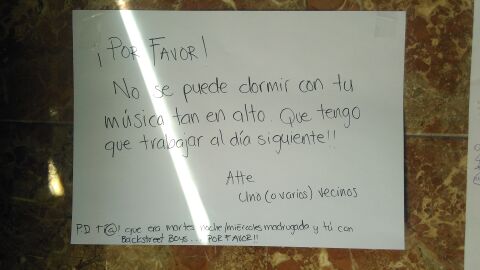 ¡POR FAVOR!
No se puede dormir con tu
música tan en alto. Que tengo
que trabajar al día siguiente!!
Atte
Uno (o varios) vecinos
P.D. Tí@! que era martes noche/miércoles madrugada y tú con
Backstreet Boys... POR FAVOR!!